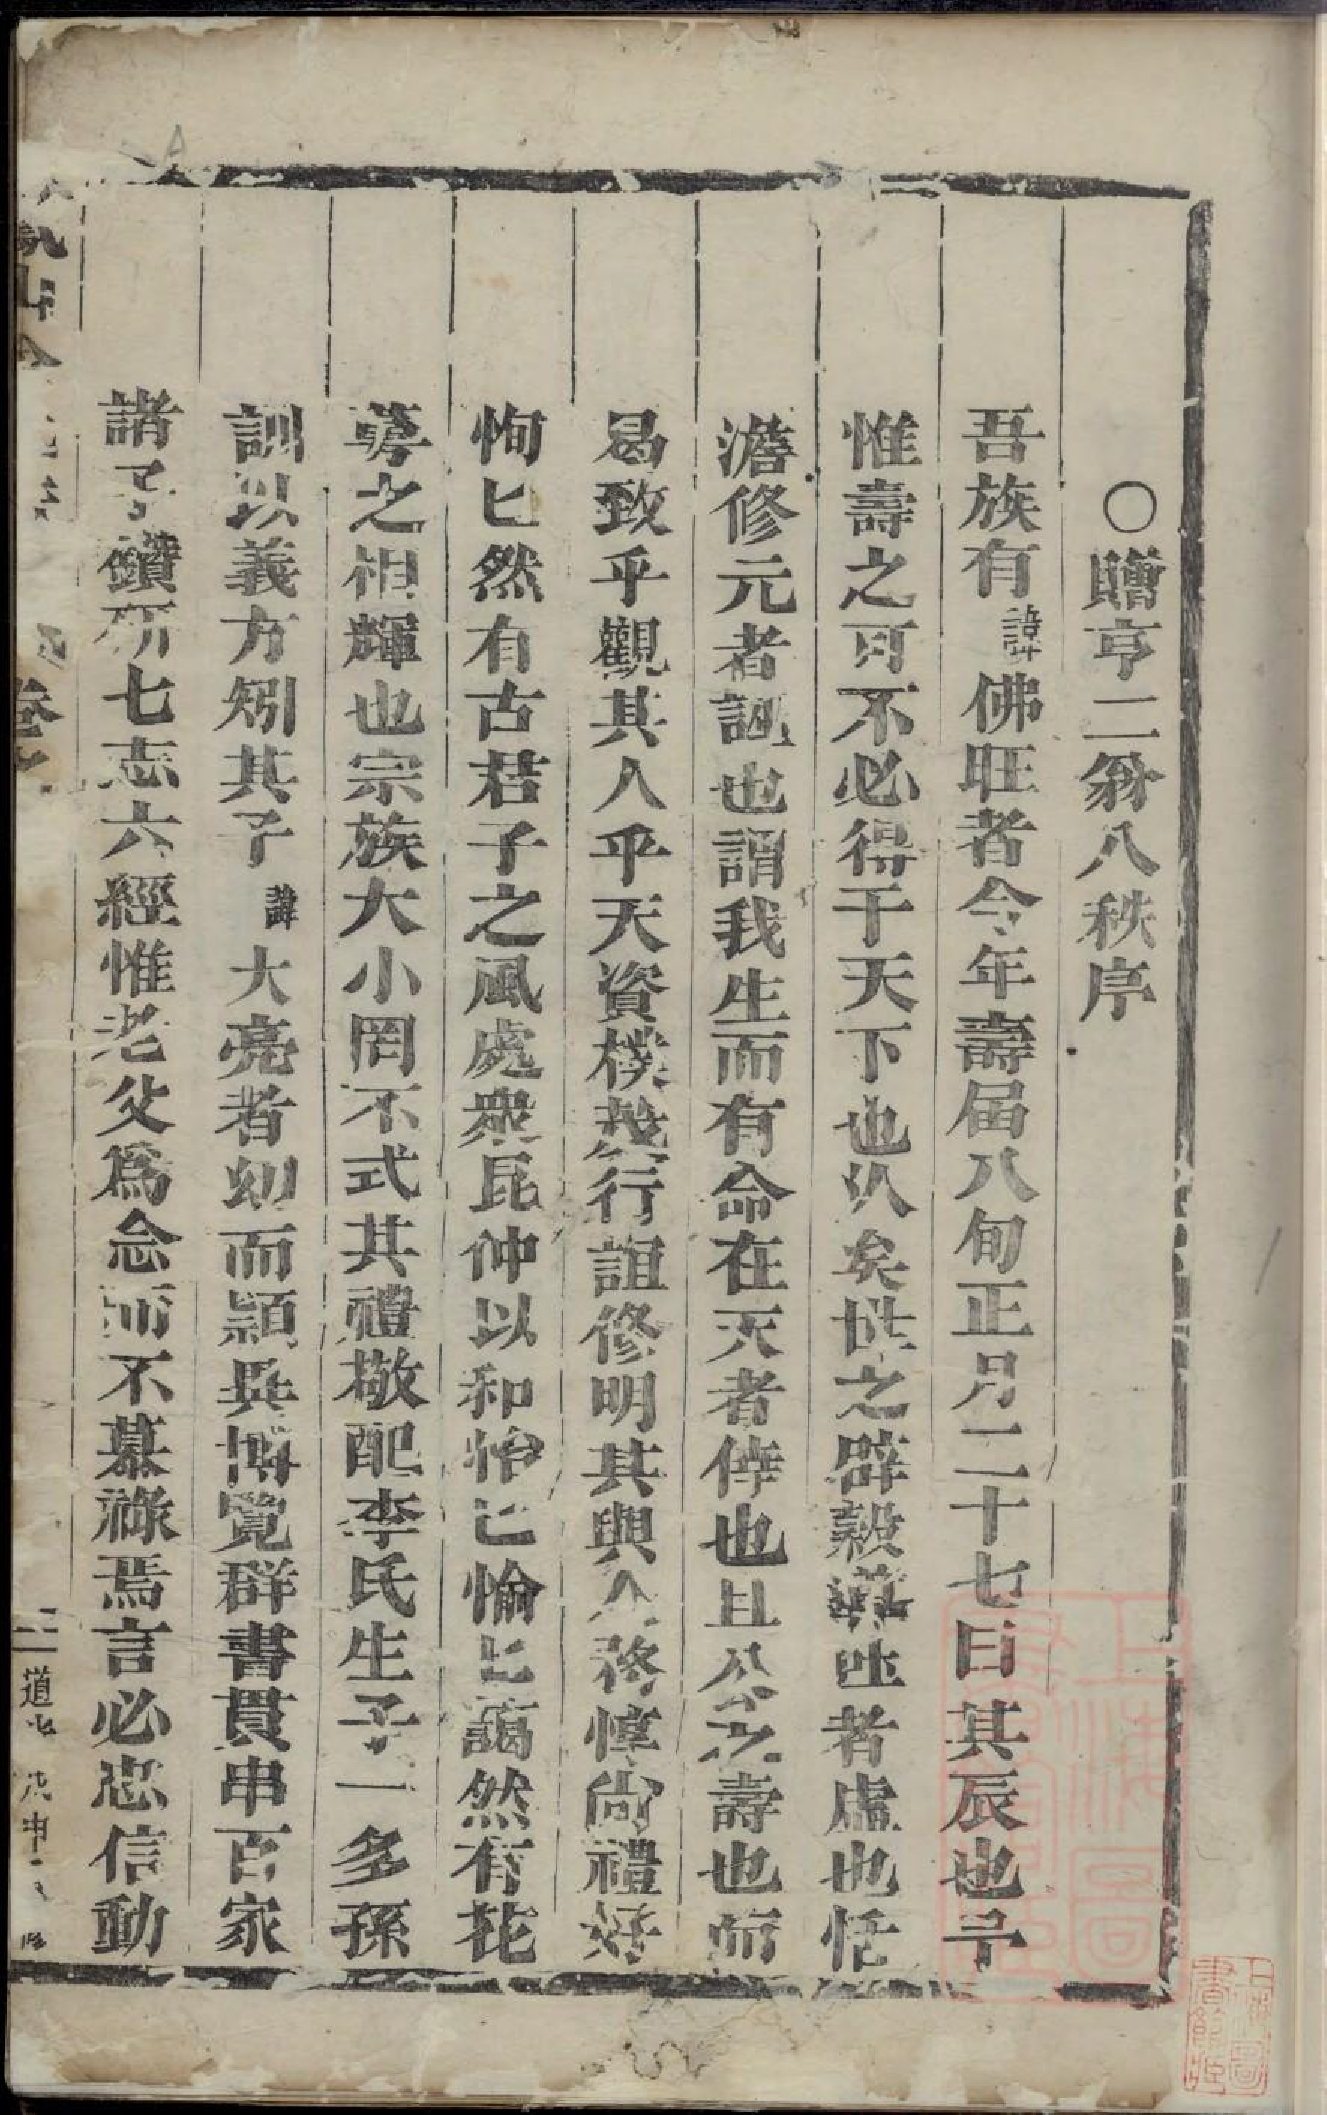 ○贈亨二翁八秩序
吾族有諱佛旺者今年壽届八旬正月二十七日其辰也予
惟壽之可不必得于天下也久矣世之辟穀導吐者虛也恬
澹修元者誣也謂我生而有命在天者倖也且公之壽也而
曷致乎觀其人乎天資樸茂行誼修明其與人務惇尚禮好
恂匕然有古君子之風處衆昆仲以和怡匕愉匕藹然有花
萼之相輝也宗族大小罔不式其禮敬配李氏生子一多孫
訓以義方矧其子諱大亮者幼而穎異博覽群書貫串百家
諸子鑽研七志六經惟老父爲念而不慕祿焉言必忠信動
卷
二 道光戊申
上海圖書館藏
上海圖書館藏